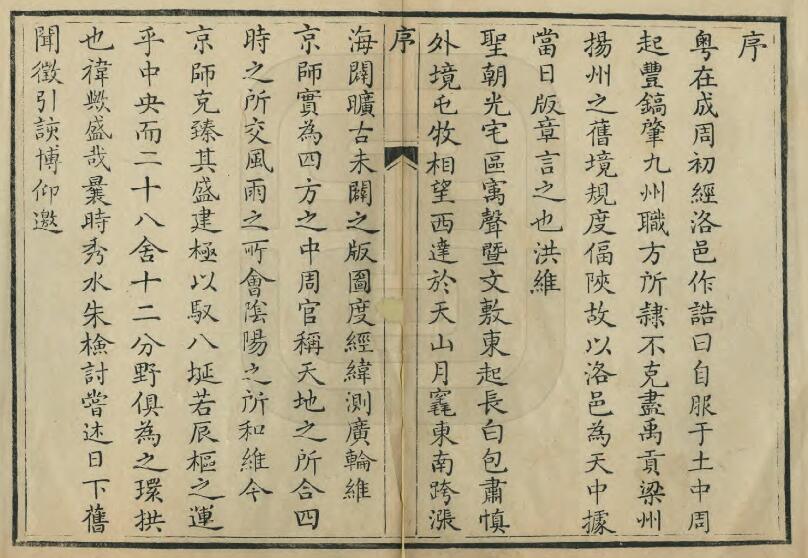 序
粤在成周初經洛邑作誥曰自服于土中周
起豐鎬肇九州職方所隷不克盡禹貢梁州
揚州之舊境規度偪陜故以洛邑為天中據
當日版章言之也洪維
聖朝光宅區寓聲暨文敷東起長白包肅慎
外境屯牧相望西達於天山月竁東南跨漲
序
海闢曠古未闢之版圖度經緯測廣輪維
京師實為四方之中周官稱天地之所合四
時之所交風雨之所會陰陽之所和維今
京師克臻其盛建極以馭八埏若辰樞之運
乎中央而二十八舍十二分野俱為之環拱
也禕歟盛哉曩時秀水朱檢討嘗述日下舊
聞徵引詼博仰邀